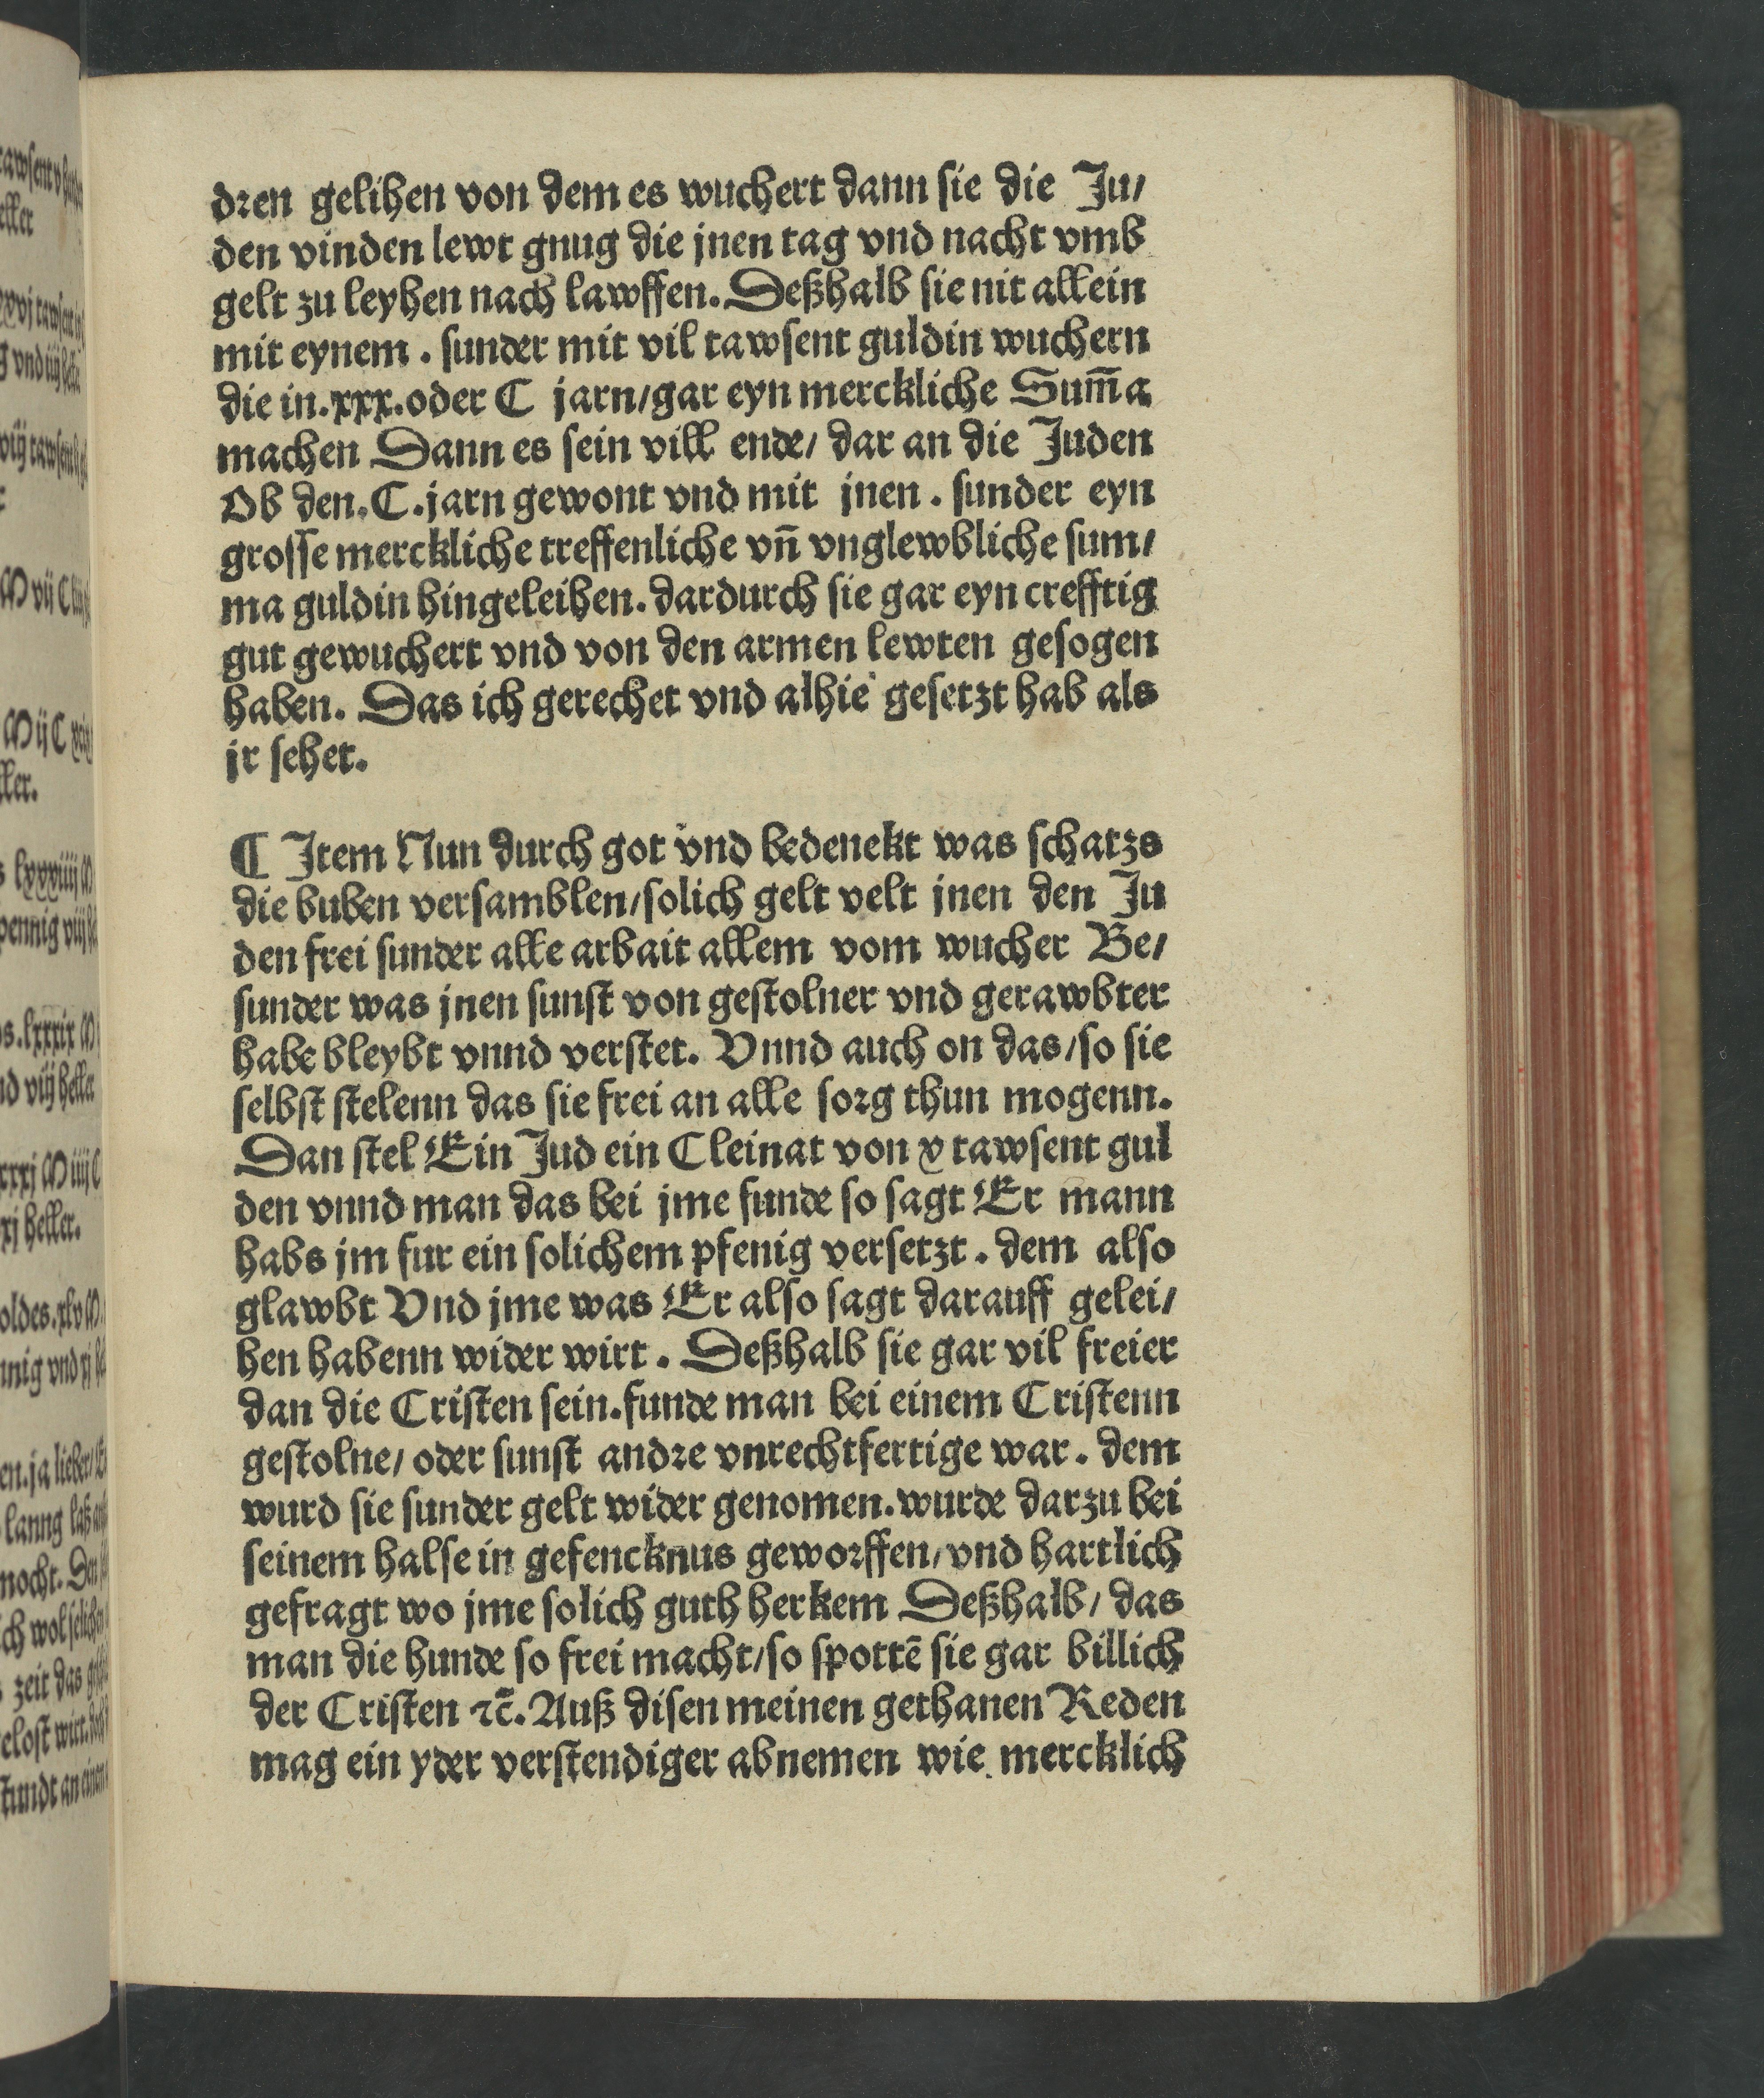 dren gelihen von dem es wuchert dann sie die Ju/
den vinden lewt gnug die jnen tag vnd nacht vmb
gelt zu leyhen nach lawffen. Deßhalb sie nit allein
mit eynem . sunder mit vil tawsent guldin wuchern
die in .xxx. oder C jarn/gar eyn merckliche Sum̃a
machen Dann es sein vill ende/ dar an die Juden
Ob den .C. jarn gewont vnd mit jnen . sunder eyn
grosse merckliche treffenliche vn̄ vnglewbliche sum/
ma guldin hingeleihen. dardurch sie gar eyn crefftig
gut gewuchert vnd von den armen lewten gesogen
haben. Das ich gerechet vnd alhie gesetzt hab als
jr sehet.
¶ Item Nun durch got vnd bedenekt was schatzs
die buben versamblen/solich gelt velt jnen den Ju
den frei sunder alle arbait allem vom wucher Be/
sunder was jnen sunst von gestolner vnd gerawbter
habe bleybt vnnd verstet. Vnnd auch on das/so sie
selbst stelenn das sie frei an alle sorg thun mogenn.
Dan stel Ein Jud ein Cleinat von x tawsent gul
den vnnd man das bei jme funde so sagt Er mann
habs jm fur ein solichem pfenig versetzt. dem also
glawbt Vnd jme was Er also sagt darauff gelei/
hen habenn wider wirt. Deßhalb sie gar vil freier
dan die Cristen sein. funde man bei einem Cristenn
gestolne/ oder sunst andre vnrechtfertige war. dem
wurd sie sunder gelt wider genomen. wurde darzu bei
seinem halse in gefencknus geworffen/vnd hartlich
gefragt wo jme solich guth herkem Deßhalb/ das
man die hunde so frei macht/so spottē sie gar billich
der Cristen ⁊c̄. Auß disen meinen gethanen Reden
mag ein yder verstendiger abnemen wie mercklich